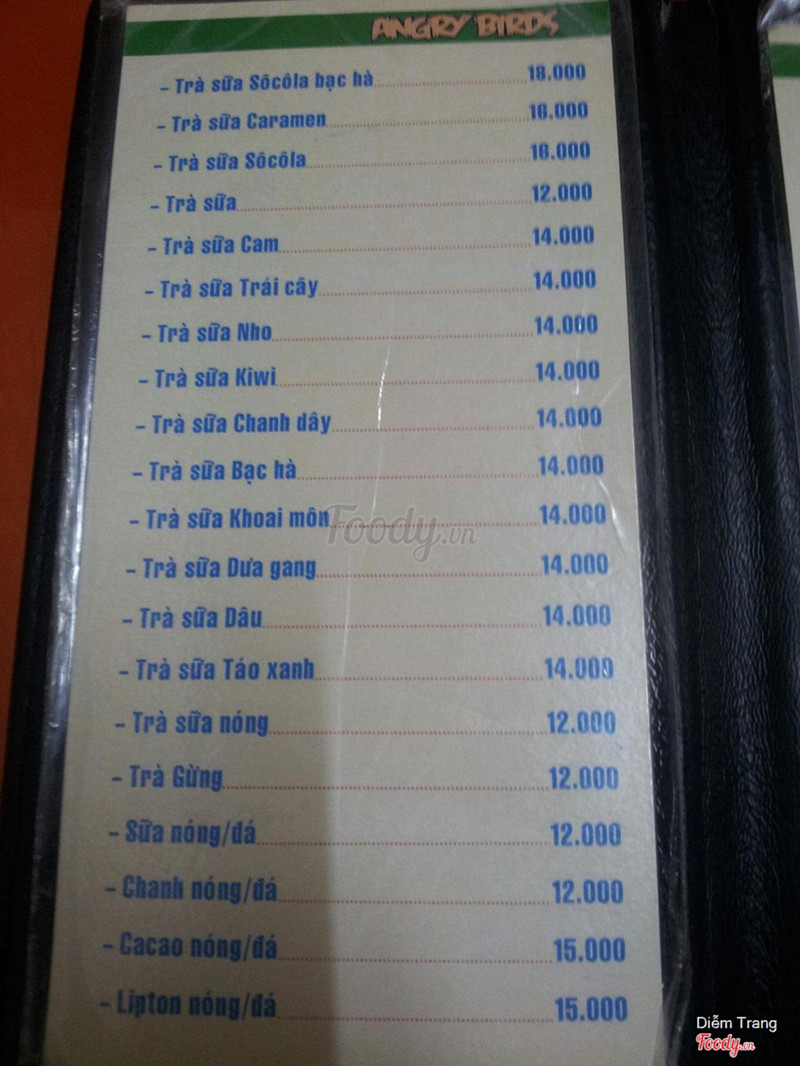 ANGRY BIRDS
- Trà sữa Sôcôla bạc hà 18.000
- Trà sữa Caramen 16.000
- Trà sữa Sôcôla 16.000
- Trà sữa 12.000
- Trà sữa Cam 14.000
- Trà sữa Trái cây 14.000
- Trà sữa Nho 14.000
- Trà sữa Kiwi 14.000
- Trà sữa Chanh dây 14.000
- Trà sữa Bạc hà 14.000
- Trà sữa Khoai môn 14.000
Foody.vn
- Trà sữa Dưa gang 14.000
- Trà sữa Dâu 14.000
- Trà sữa Táo xanh 14.000
- Trà sữa nóng 12.000
- Trà Gừng 12.000
- Sữa nóng/đá 12.000
- Chanh nóng/đá 12.000
- Cacao nóng/đá 15.000
- Lipton nóng/đá 15.000
Diễm Trang
Foody.vn